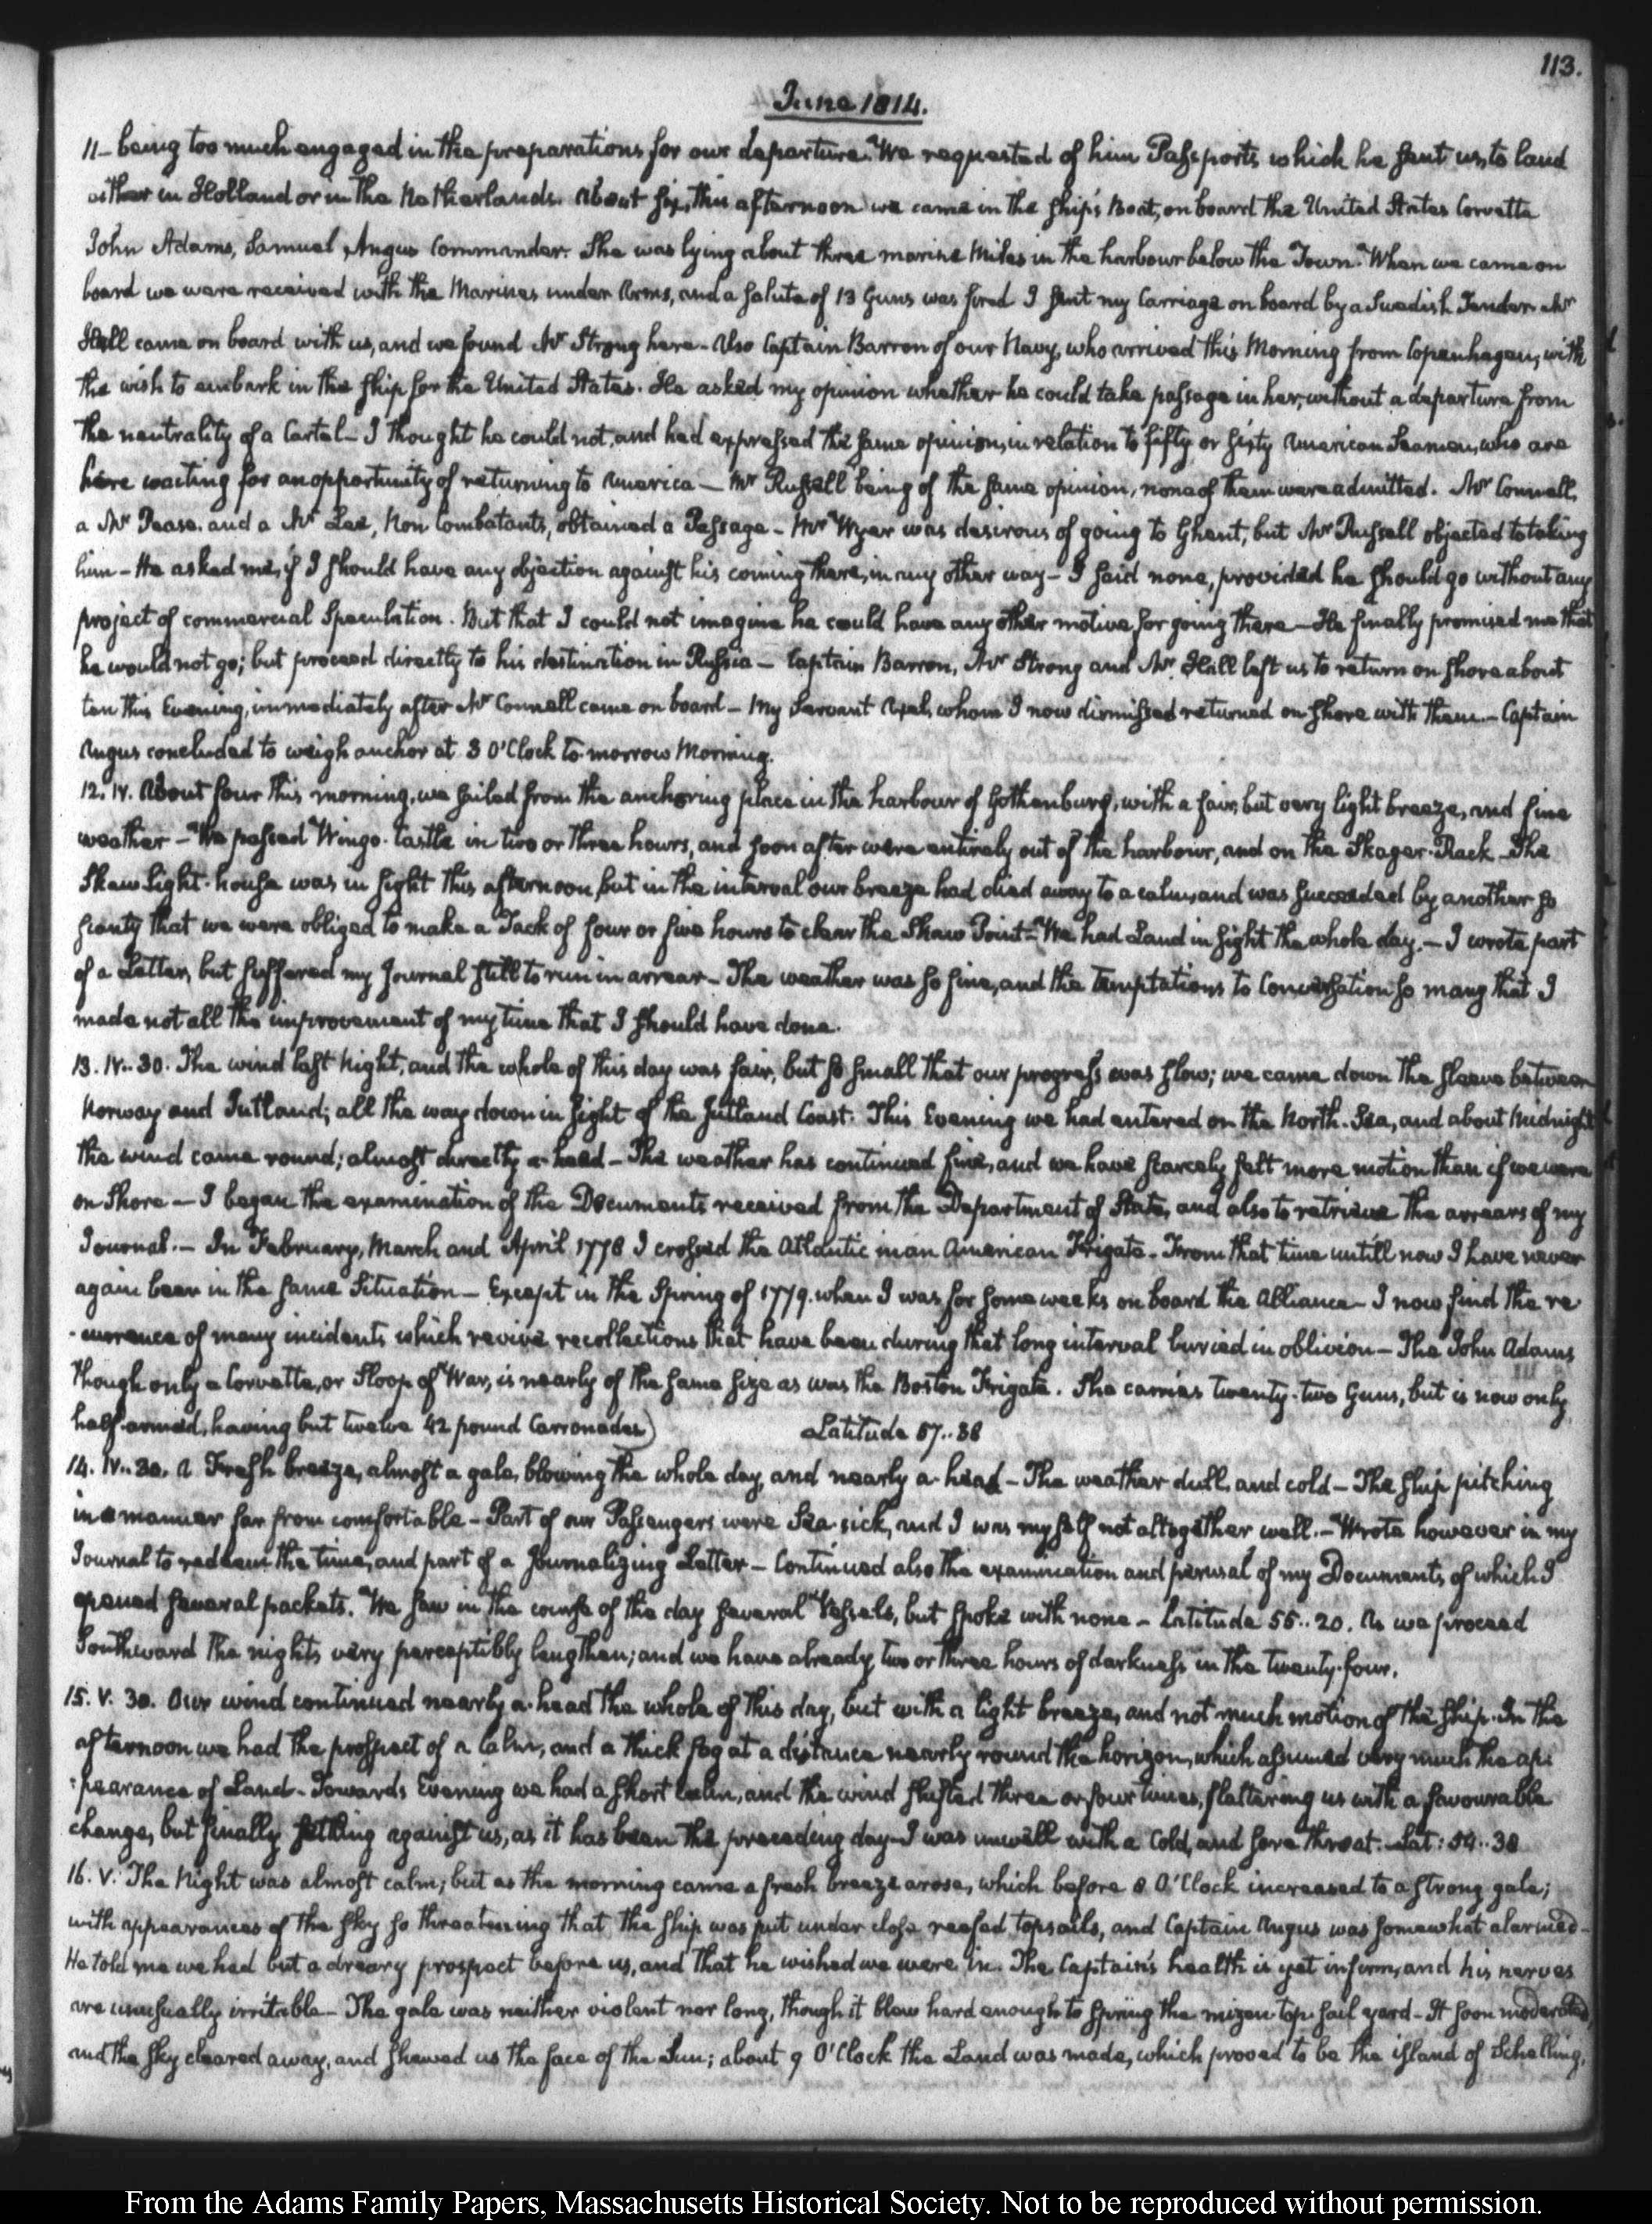 113.
June 1814.
11– being too much engaged in the preparations for our departure. We requested of him Passports, which he sent us, to land
either in Holland or in the Netherlands. About six, this afternoon we came in the ship's Boat, on board the United States Corvette
John Adams, Samuel Angus Commander. She was lying about three marine Miles in the harbour below the Town. When we came on
board we were received with the Marines under Arms, and a salute of 13 Guns was fired I sent my Carriage on board by a Swedish Tender. Mr
Hall came on board with us, and we found Mr Strong here – Also Captain Barron of our Navy, who arrived this Morning from Copenhagen, with
the wish to embark in this ship for the United States. He asked my opinion whether he could take passage in her, without a departure from
the neutrality of a Cartel – I thought he could not, and had expressed the same opinion, in relation to fifty or sixty American Seamen, who are
here waiting for an opportunity of returning to America – Mr Russell being of the same opinion, none of them were admitted. Mr Connell,
a Mr Pease, and a Mr Lee, Non Combatants, obtained a Passage – Mr Wyer was desirous of going to Ghent, but Mr Russell objected to taking
him – He asked me, if I should have any objection against his coming there, in any other way – I said none, provided he should go without any
project of commercial Speculation. But that I could not imagine he could have any other motive for going there – He finally promised me that
he would not go; but proceed directly to his destination in Russia – Captain Barron, Mr Strong and Mr Hall left us to return on shore about
ten this Evening, immediately after Mr Connell came on board – My Servant Axel, whom I now dismissed returned on shore with them. – Captain
Angus concluded to weigh anchor at 3 O'Clock to-morrow Morning.
12. IV. About four this morning, we sailed from the anchoring place in the harbour of Gothenburg, with a fair, but very light breeze, and fine
weather – We passed Wingo-Castle in two or three hours, and soon after were entirely out of the harbour, and on the Skager-Rack – The
Skaw Light-house was in sight this afternoon, but in the interval our breeze had died away to a calm, and was succeeded by another so
scanty that we were obliged to make a Tack of four or five hours to clear the Skaw Point – We had Land in sight the whole day. – I wrote part
of a Letter, but suffered my Journal still to run in arrear – The weather was so fine, and the Temptations to Conversation so many that I
made not all the improvement of my time that I should have done.
13. IV..30. The wind last Night, and the whole of this day was fair, but so small that our progress was slow; we came down the sleeve between
Norway and Jutland; all the way down in sight of the Jutland Coast. This Evening we had entered on the North-Sea, and about Midnight
the wind came round; almost directly a-head – The weather has continued fine, and we have scarcely felt more motion than if we were
on Shore – I began the examination of the Documents received from the Department of State, and also to retrieve the arrears of my
Journal. – In February, March and April 1778 I crossed the Atlantic in an American Frigate – From that time untill now I have never
again been in the same Situation – Except in the Spring of 1779 when I was for some weeks on board the Alliance – I now find the re-
-currence of many incidents which revive recollections that have been during that long interval buried in oblivion – The John Adams,
though only a Corvette, or Sloop of War, is nearly of the same size as was the Boston Frigate. She carries twenty-two Guns, but is now only
half-armed, having but twelve 42 pound Carronades) Latitude 57..38
14. IV..30. A Fresh breeze, almost a gale, blowing the whole day, and nearly a-head – The weather dull, and cold – The ship pitching
in a manner far from comfortable – Part of our Passengers were Sea-sick, and I was myself not altogether well. – Wrote however in my
Journal to redeem the time, and part of a Journalizing Letter – Continued also the examination and perusal of my Documents, of which I
opened several packets. We saw in the course of the day several Vessels, but spoke with none – Latitude 55..20. As we proceed
Southward the nights very perceptibly lengthen; and we have already two or three hours of darkness in the twenty-four.
15. V. 30. Our wind continued nearly a-head the whole of this day, but with a light breeze, and not much motion of the ship. In the
afternoon we had the prospect of a Calm, and a thick fog at a distance nearly round the horizon, which assumed very much the ap-
-pearance of Land – Towards Evening we had a short Calm, and the wind shifted three or four times, flattering us with a favourable
change, but finally settling against us, as it has been the preceding day – I was unwell with a Cold, and sore throat. Lat: 54..38
16. V. The Night was almost calm; but as the morning came a fresh breeze arose, which before 8 O'Clock increased to a strong gale;
with appearances of the sky so threatening that the ship was put under close reefed topsails, and Captain Angus was somewhat alarmed –
He told me we had but a dreary prospect before us, and that he wished we were in. The Captain's health is yet infirm, and his nerves
are unusually irritable – The gale was neither violent nor long, though it blew hard enough to spring the mizen top sail yard – It soon moderated,
and the sky cleared away, and shewed us the face of the Sun; about 9 O'Clock the Land was made, which proved to be the island of Schelling,
From the Adams Family Papers, Massachusetts Historical Society. Not to be reproduced without permission.